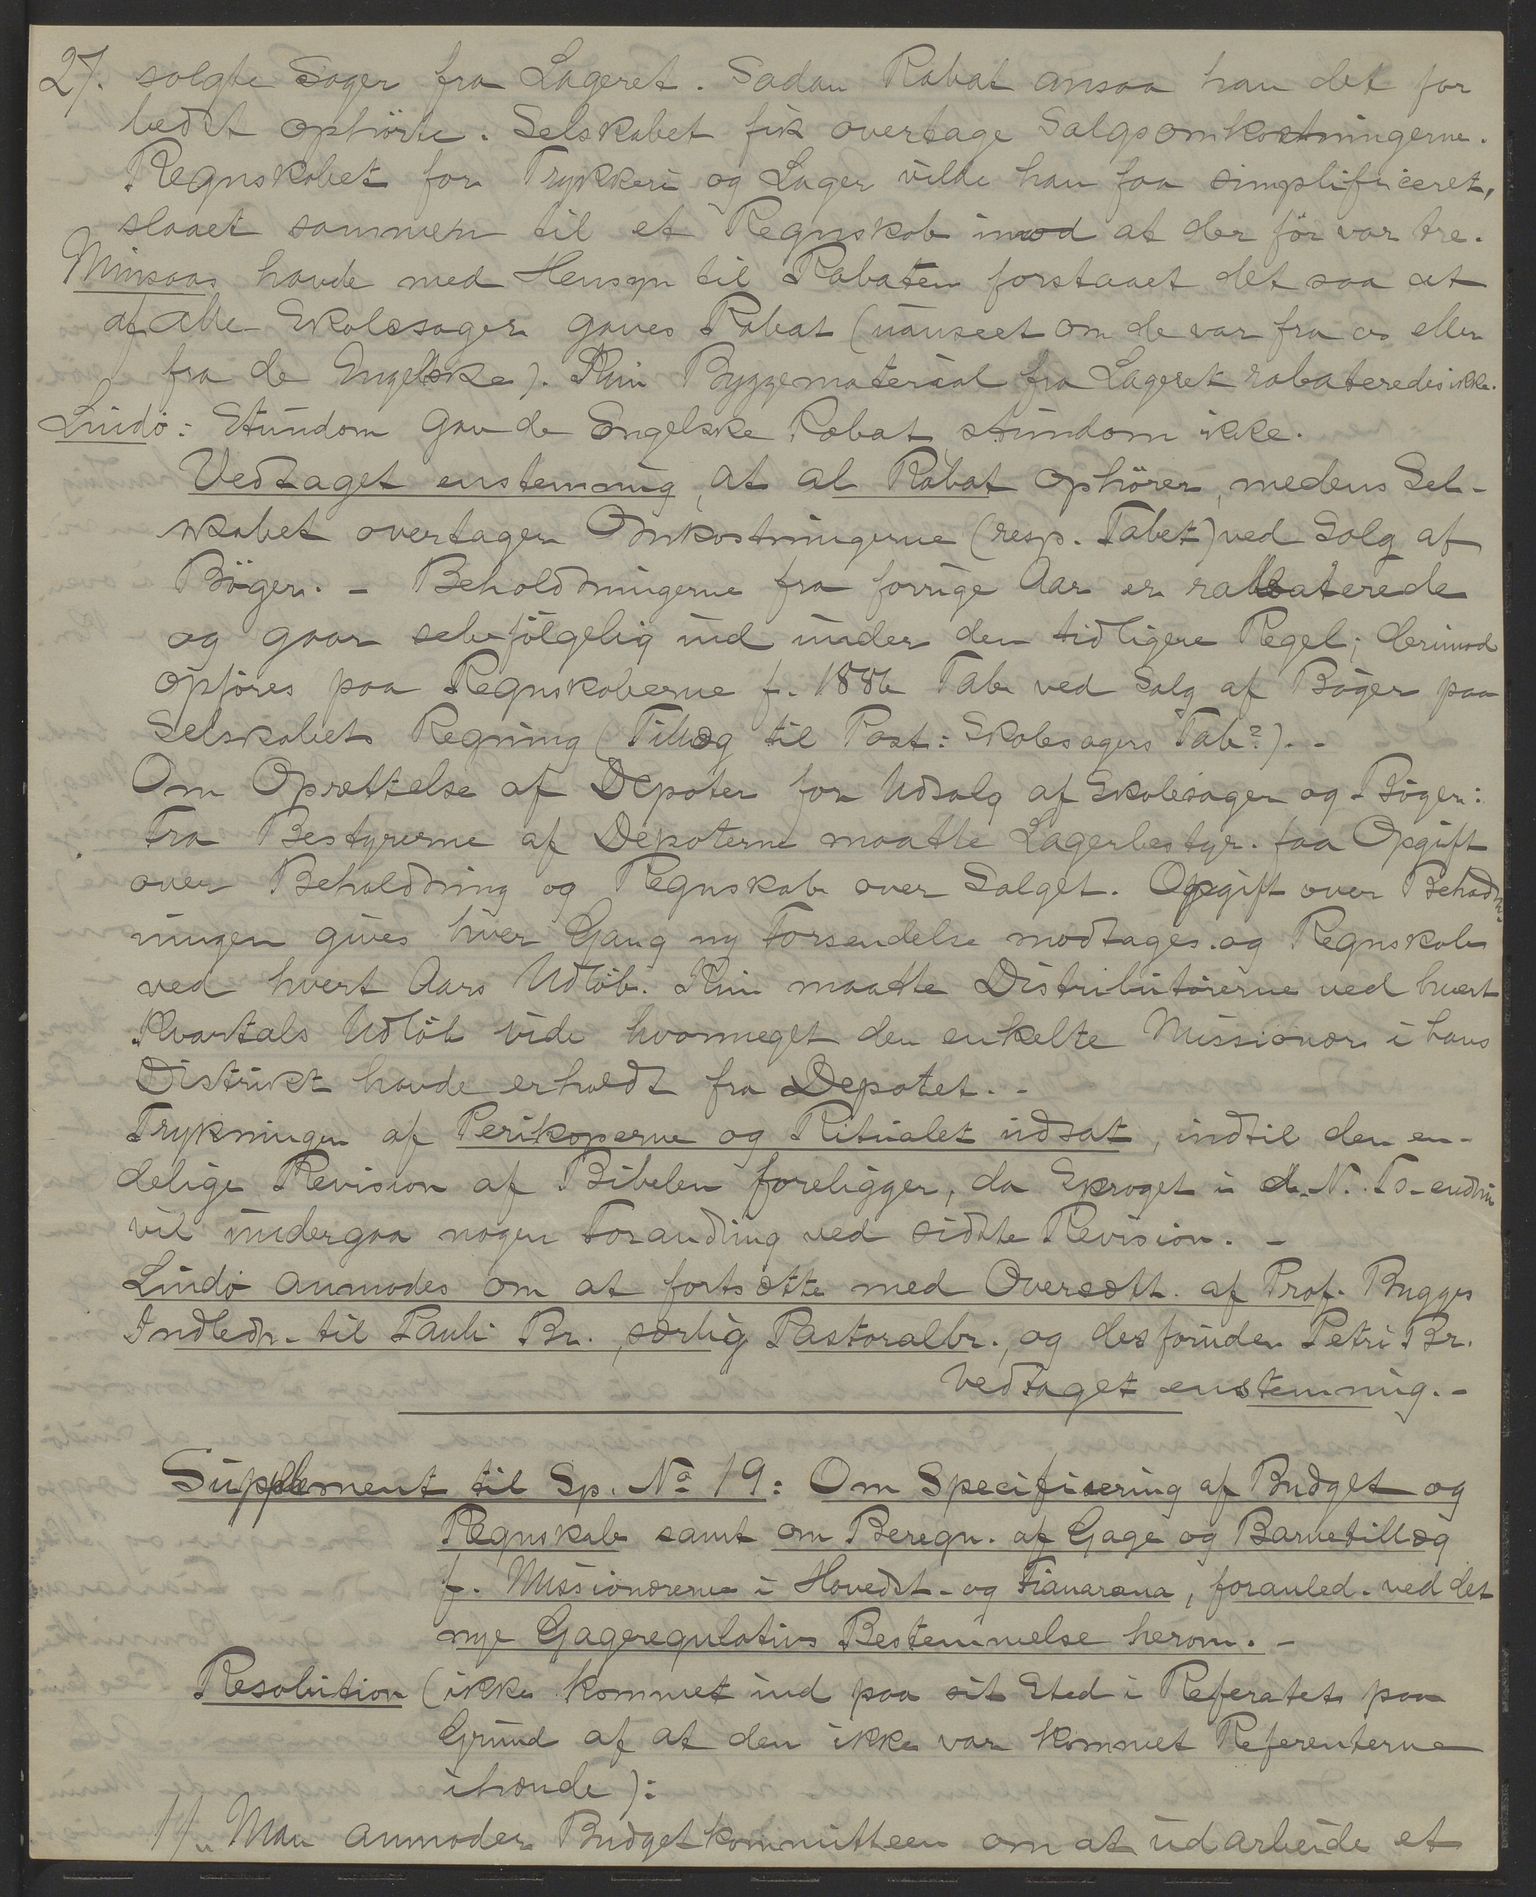 27. solgte Sager fra Lageret. Sadan Rabat ansaa han det for
bedst ophörte. Selskabet fik overtage Salgsomkostningerne.
Regnskabet for Trykkeri og Lager vilde han faa simplificeret,
slaaet sammen til et Regnskab imod at der för var tre.
Minsaas havde med Hensyn til Rabaten forstaaet det saa at
af alle Skolesager gaves Rabat (uanseet om de var fra os eller
fra de Engelske). Kun Byggematerial fra Lageret rabateredes ikke.
Lindö: Stundom gav de Engelske Rabat stundom ikke.
Vedtaget enstemmig, at al Rabat ophörer, medens Sel-
skabet overtager Omkostningerne (resp. Tabet) ved Salg af
Böger. - Beholdningerne fra forrige Aar er rabaterede
og gaar selvfölgelig ind under den tidligere Regel; derimod
opföres paa Regnskaberne f. 1886 Tab ved Salg af Böger paa
Selskabets Regning (Tillæg til Post: Skolesagers Tab?). -
Om Oprettelse af Depoter for Udsalg af Skolesager og Böger:
Fra Bestyrerne af Depoterne maatte Lagerbestyr. faa Opgift
over Beholdning og Regnskab over Salget. Opgift over Behold-
ningen gives hver Gang ny Forsendelse modtages og Regnskab
ved hvert Aars Udlöb. Kun maatte Distributörerne ved hvert
Kvartals Udlöb vide hvormeget den enkelte Missionær i hans
Distrikt havde erholdt fra Depotet. -
Trykningen af Perikoperne og Ritualet udsat, indtil den en-
delige Revision af Bibelen foreligger, da Sproget i d. N. Ts-
vil undergaa nogen Forandring ved sidste Revision. -
Lindö anmodes om at fortsætte med Oversætt. af Prof. Bugges
Indledn. til Pauli Br., særlig Pastoralbr., og desforuden Petri Br.
Vedtaget enstemmig. -
Supplement til Sp. No 19: Om Specifisering af Budget og
Regnskab samt om Beregn. af Gage og Barnetillæg
f. Missionærerne i Hovedst. og Fianarana, foranled. ved det
nye Gageregulativs Bestemmelse herom. -
Resolution (ikke kommet ind paa sit Sted i Referatet paa
Grund af at den ikke var kommet Referenterne
ihænde):
1/. Man anmoder Budgetkommitteen om at udarbeide et